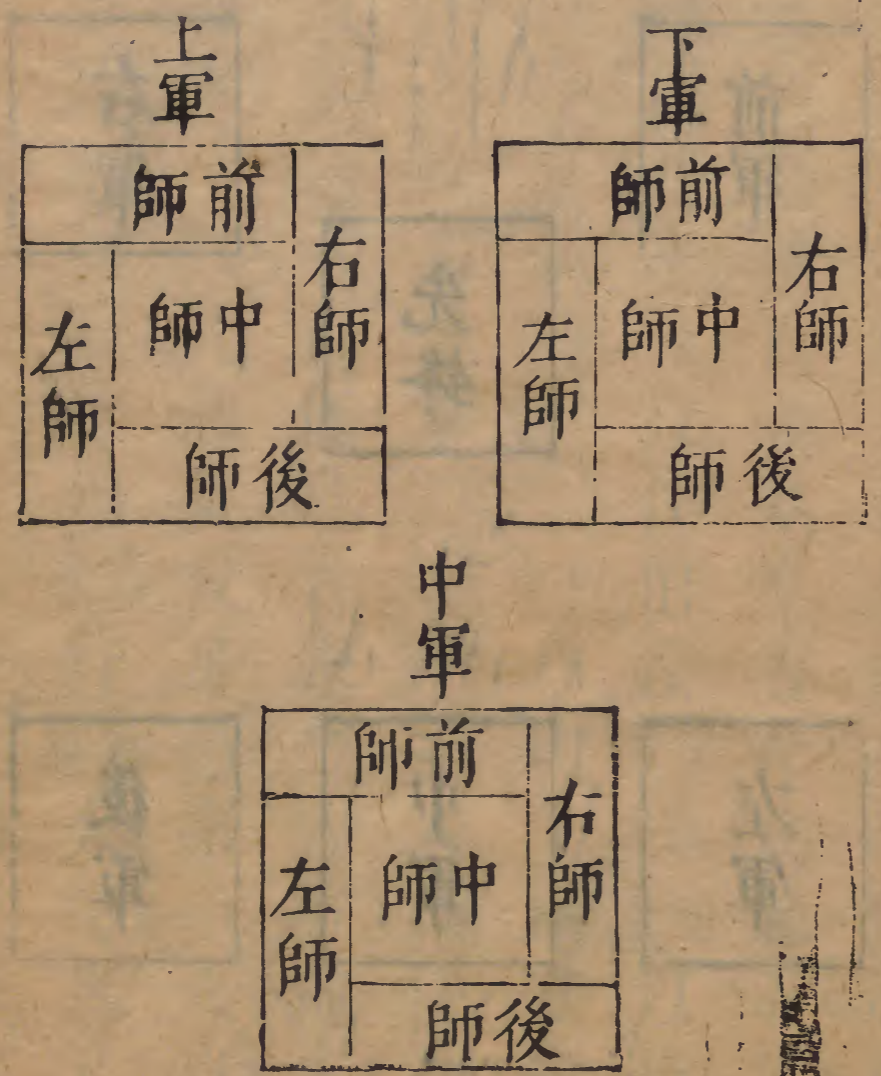 下軍
前師
右師
中師
左師
後師
上軍
前師
右師
中師
左師
後師
中軍
前師
右師
中師
左師
後師